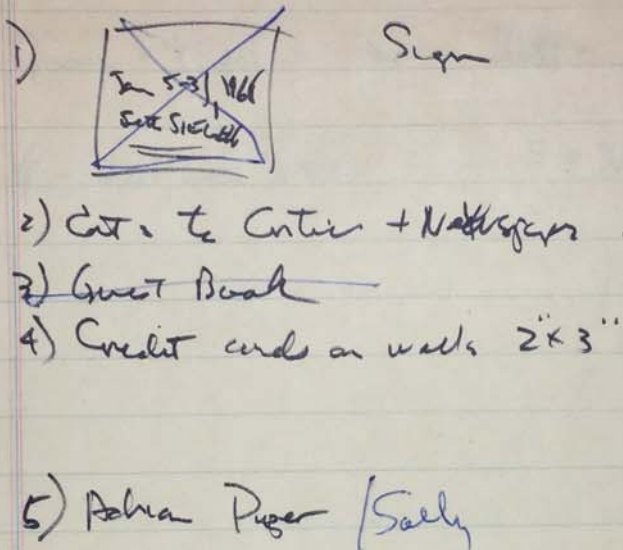 1) Sign
Jan 5-31 1966
2) to Critics + Newspaper
3) Guest Book
4) Credit cards on walls 2"x3"
5) Adrian Piper /Sally